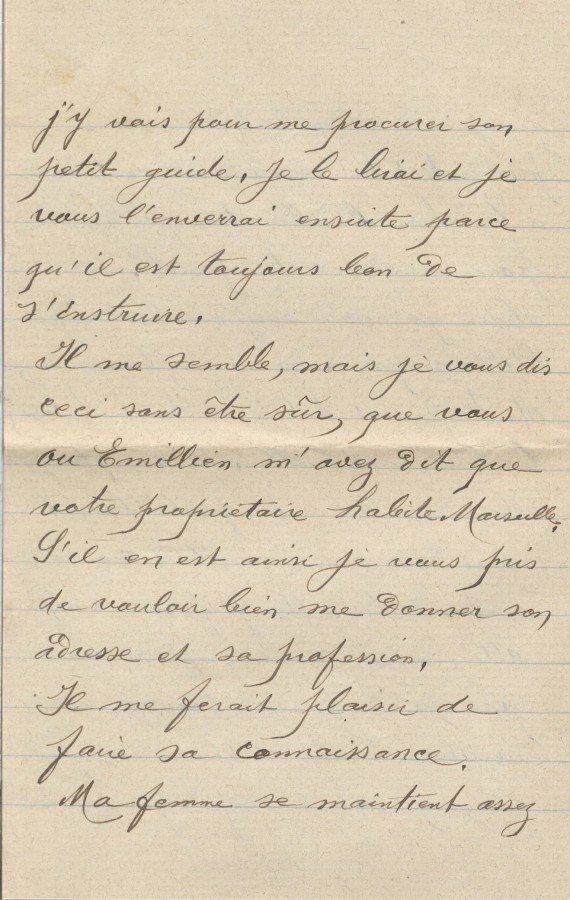 j'y vais pour me procurer son
petit guide. Je le lirai et je
vous l'enverrai ensuite parce
qu'il est toujours bon de
s'instruire.
Il me semble, mais je vous dis
ceci sans être sûr, que vous
ou Emillien m'avez dit que
votre propriétaire habite Marseille.
S'il en est ainsi je vous pris
de vouloir bien me donner son
adresse et sa profession.
Il me ferait plaisir de
faire sa connaissance.
Ma femme se maintient assez